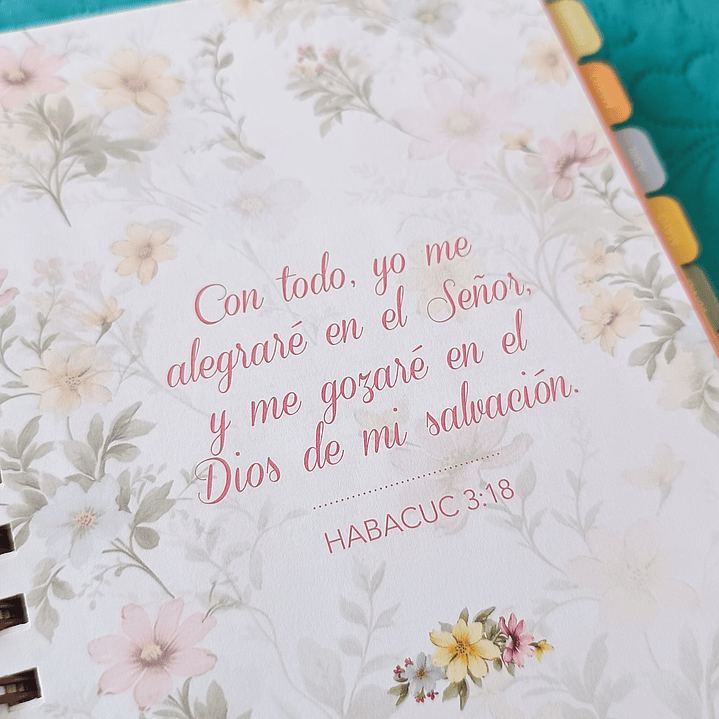 Con todo, yo me
alegraré en el Señor,
y me gozaré en el
Dios de mi salvación.
HABACUC 3:18